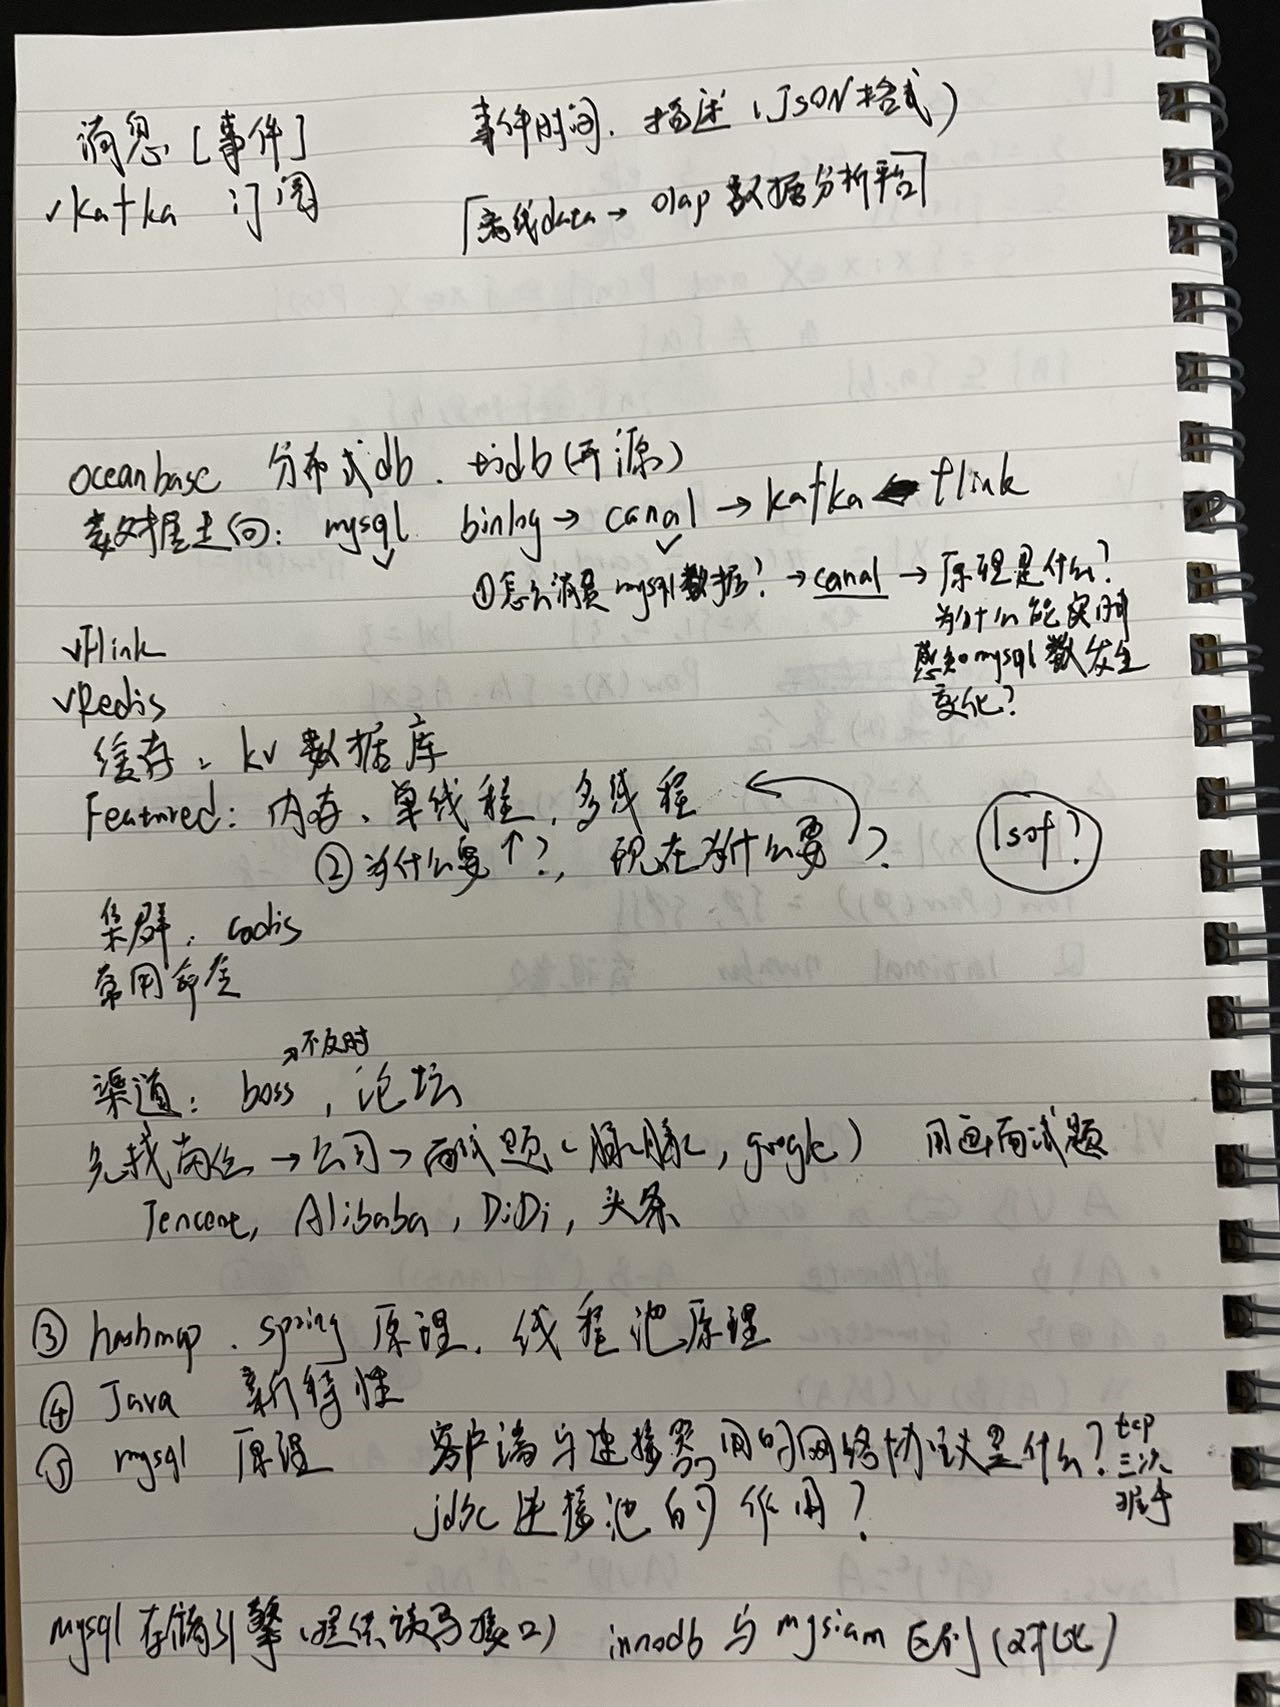 消息[事件] 事件时间、描述(JSON格式)
√kafka 订阅 「离线data→ olap数据分析平台」
oceanbase 分布式db. tidb(开源)
数据走向: mysql binlog→ canal →kafka flink
①怎么消费mysql数据?→canal→原理是什么?
为什么能实时
感知mysql数发生
变化?
√Flink
√Redis
缓存、kv数据库
Featured: 内存、单线程,多线程
②为什么要↑?, 现在为什么要 ?
lsof?
集群. codis
常用命令
→不及时
渠道: boss,论坛
先找岗位→公司→面试题(脉脉,google) 面试题
Tencent, Alibaba, DiDi, 头条
③ hashmap. spring原理. 线程池原理
④ Java 新特性
⑤ mysql 原理 客户端与连接器用的网络协议是什么? tcp
三次
握手
jdbc连接池的作用?
mysql存储引擎(提供读写接口) innodb与mysiam区别(对比)